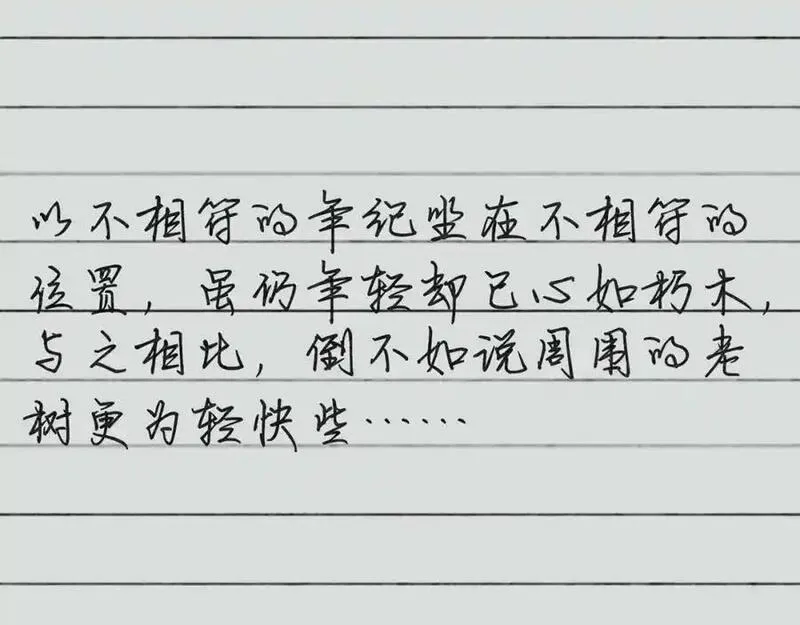 以不相符的年纪坐在不相符的
位置，虽仍年轻却已心如朽木，
与之相比，倒不如说周围的老
树更为轻快些……